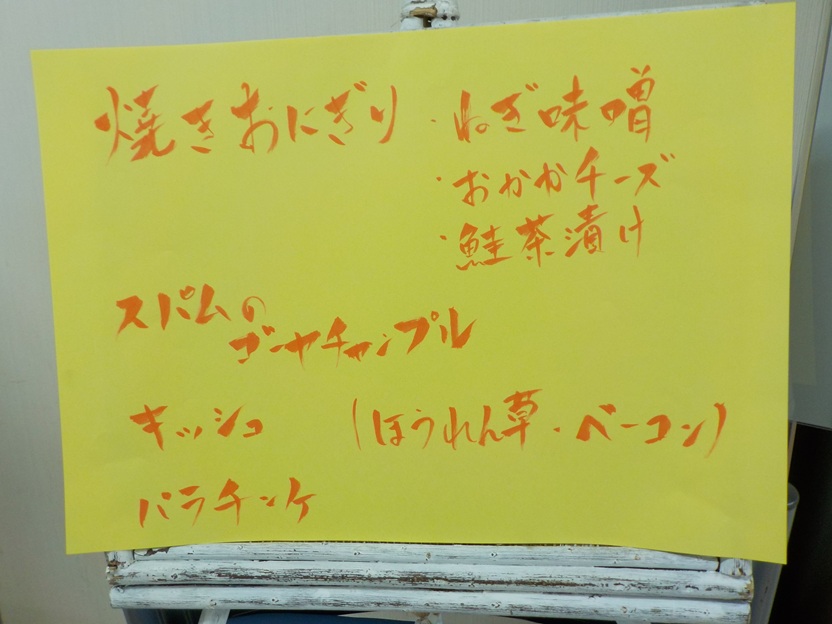 焼きおにぎり ・ねぎ味噌
・おかかチーズ
・鮭茶漬け
スパムの
ゴーヤチャンプル
キッシュ (ほうれん草・ベーコン)
パラチンケ